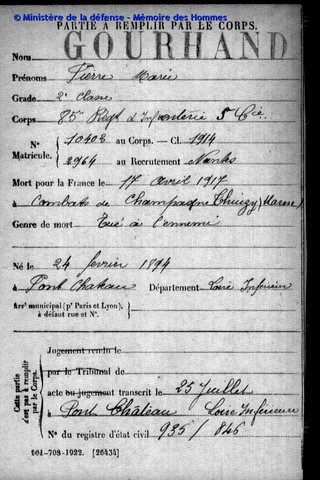 © Ministère de la défense - Mémoire des Hommes
PARTIE A REMPLIR PAR LE CORPS.
Nom GOURHAND
Prénoms Pierre Marie
Grade 2e classe
Corps Régt d'Infanterie 5 Cie
N° 10402 au Corps. — Cl. 1914
Matricule. 2964 au Recrutement Nantes
Mort pour la France le 17 avril 1917
à Combats de Champagne Thuizy (Marne)
Genre de mort Tué à l'ennemi
Né le 24 février 1894
à Pont Chateau Département Loire Inférieure
Arrt municipal (pr Paris et Lyon),
à défaut rue et N°.
Cette partie
n'est pas à remplir
par le Corps.
Jugement rendu le
par le Tribunal de
acte ou jugement transcrit le 25 Juillet
à Pont Château Loire Inférieure
N° du registre d'état civil 935/846
[26434]